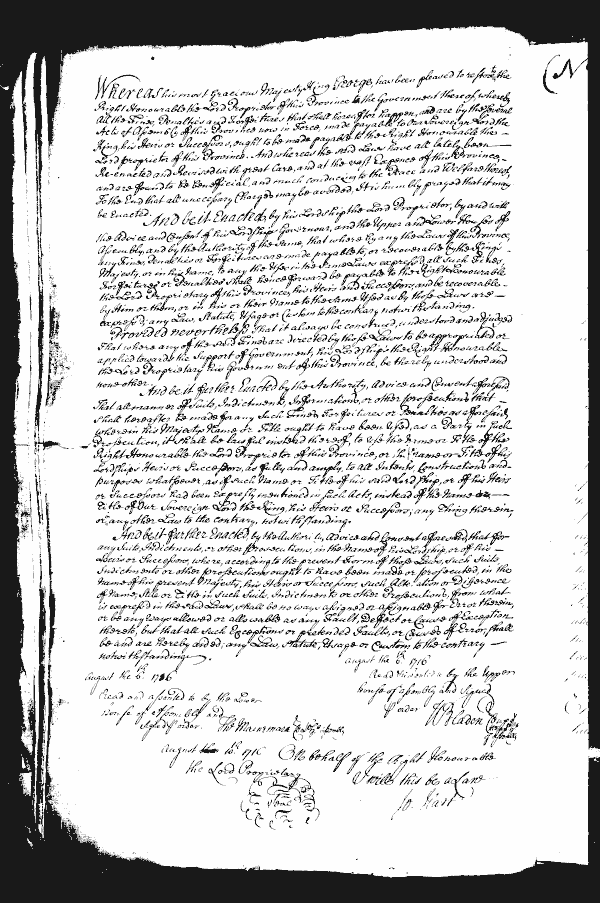 Whereas his most gracious Majesty King George, has been pleased to restore, the
Right Honourable the Lord Proprietor of this Province to the Government thereof, whereby
All the Fines, Penalties and Forfeitures that shall hereafter happen, and are by the several
Acts of Assembly of this Province now in Force, made payable to our Sovereign Lord the
King, his Heirs or Successors, ought to be made payable to the Right Honourable the
Lord proprietor of this Province. And whereas the said Laws have all lately been
Re-enacted and Revised with great Care, and at the vast Expence of this Province,
and are found to be Beneficial, and much conducing to the Peace and Welfare thereof,
To the End that all unnecessary Charges may be avoided, It is humbly prayed that it may
be Enacted.
And be it Enacted, by his Lordship the Lord Proprietor, by and with
the Advice and Consent of his Lordship's Governour, and the Upper and Lower Houses of
Assembly, and by the Authority of the Same, that where by any the Laws of this Province,
any Fines, Penalties or Forfeitures are made payable to, or recoverable by the King's
Majesty, or in his Name, to any the Uses in the same Laws express'd, all such Fines,
Forfeitures or Penalties shall henceforward be payable to the Right Honourable
the Lord Proprietary of this Province, his Heirs and Successors, and be recoverable
by Him or them, or in his or their Name to the same Uses as by those Laws are
express'd; any Law, Statute, Usage or Custom to the contrary notwithstanding.
Provided nevertheless, That it always be construed, understood and adjudged
That where any of the said Fines are directed by those Laws to be appropriated or
applied towards the Support of Government, his Lordship's the Right Honourable
the Lord Proprietary his Government of this Province, be thereby understood and
none other.
And be it further Enacted by the Authority, Advice and Consent aforesaid
That all manner of Suits, Indictments, Informations, or other prosecutions that
shall hereafter be made for any Such Fines, Forfeitures or Penalties as aforesaid,
wherein his Majesty's Name or Title ought to have been Used, as a Party in such
Prosecution, it shall be lawful instead thereof, to Use the Name or Title of the
Right Honourable the Lord Proprietor of this Province, or the name or Title of his
Lordships Heirs or Successors, as fully and amply, to all Intents, Constructions and
purposes whatsoever, as if such Name or Title of his said Lordship, or of his Heirs
or Successors had been expressly mentioned in such Acts, instead of the Name or
Title of Our Sovereign Lord the King, his Heirs or Successors; any thing therein,
or any other Law to the contrary notwithstanding.
And be it further Enacted, by the Authority, Advice and Consent aforesaid, that for
any Suits, Indictments, or other Prosecutions, in the Name of his Lordship, or of his
Heirs or Successors, where, according to the present Form of those Laws, such Suits,
Indictments or other prosecutions ought to have been made or prosecuted in the
Name of his present Majesty, his Heirs or Successors, such Alteration or Difference
of Name, Stile or Title in such Suits, Indictments or other Prosecutions, from what
is express'd in the said Laws, shall be no ways assigned or assignable for Error therein,
or be any ways allowed or allowable as any Fault, Deffect or Cause of Exception
thereto, but that all such Exceptions or pretended Faults, or Causes of Error, shall
be and are hereby aided; any Law, Statute, Usage or Custom to the contrary
notwithstanding.
August the 6th 1716
Read and assented to by the Lower
House of Assembly and
Signed per order.
August the 6th 1716
Read & assented to by the Upper
House of Assembly and Signed
per order
August 10th 1716 On behalf of the Right Honourable
the Lord Proprietary I will this be a Law
Jo. Hart
The
Seal
(N